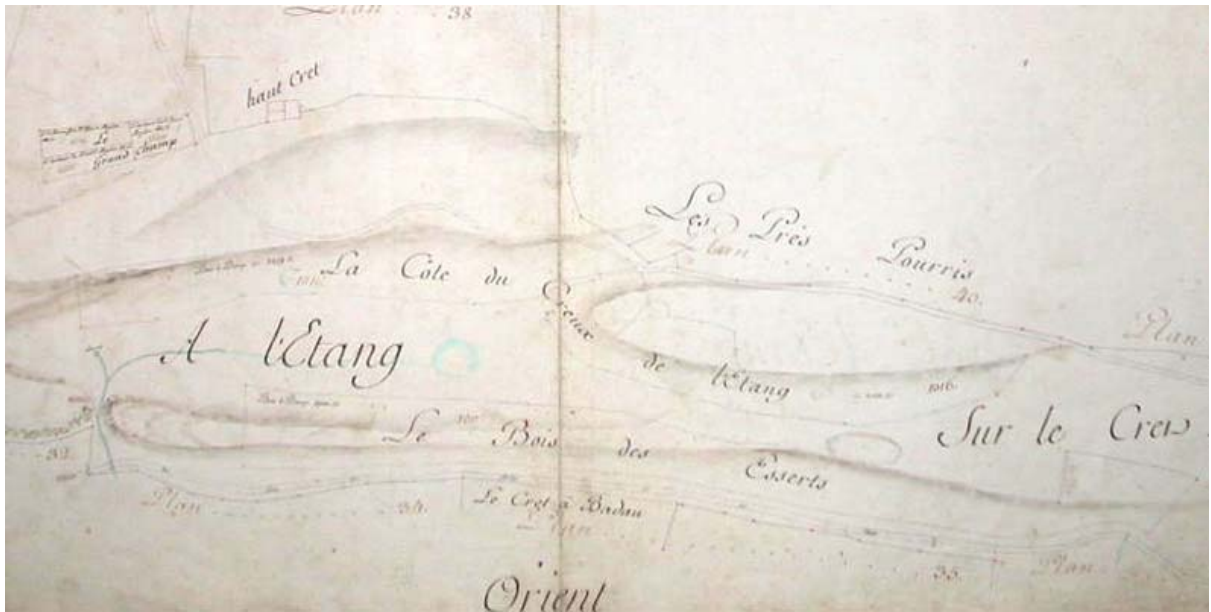 Plan 38
haut Cret
Le
Grand Champ
Les Prés Pourris
Plan 40.
La Côte du Creux de l'Etang
Plan
A l'Etang
1916.
Le Bois des Esserts
Sur le Cret
Plan 34.
Le Cret à Badau
Plan 35.
Plan
Orient